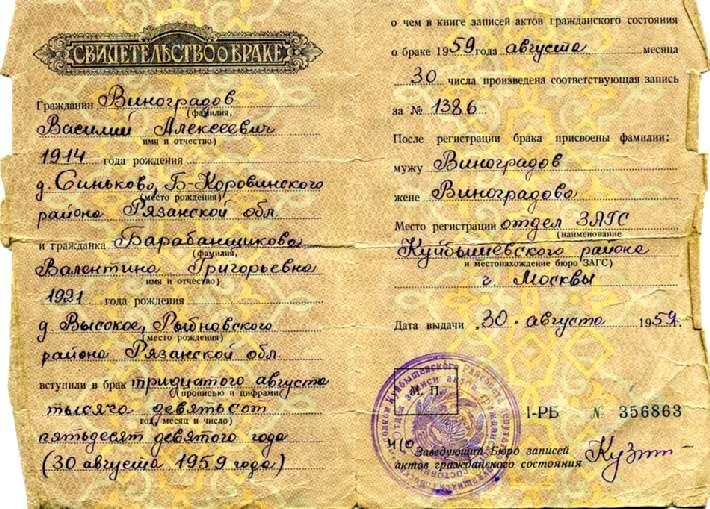 СВИДЕТЕЛЬСТВО О БРАКЕ
Гражданин Виноградов
(фамилия,
Василий Алексеевич
имя и отчество)
1914 года рождения
д. Синьково, Б-Коровинского
(место рождения)
района Рязанской обл.
и гражданка Барабанщикова
(фамилия,
Валентина Григорьевна
имя и отчество)
1921 года рождения
д Высокое, Рыбновского
(место рождения)
района Рязанской обл
вступили в брак тридцатого августа
(прописью и цифрами
тысяча девятьсот
год, месяц и число)
пятьдесят девятого года
(30 августа 1959 года)
о чем в книге записей актов гражданского состояния
о браке 1959 года августа месяца
30 числа произведена соответствующая запись
за № 1386
После регистрации брака присвоены фамилии:
мужу Виноградов
жене Виноградова
Место регистрации отдел ЗАГС
(наименование
Куйбышевского района
и местонахождение бюро ЗАГС)
г Москвы
Дата выдачи 30 августа 1959г.
М. П.
I-РБ № 356863
Заведующий Бюро записей
актов гражданского состояния